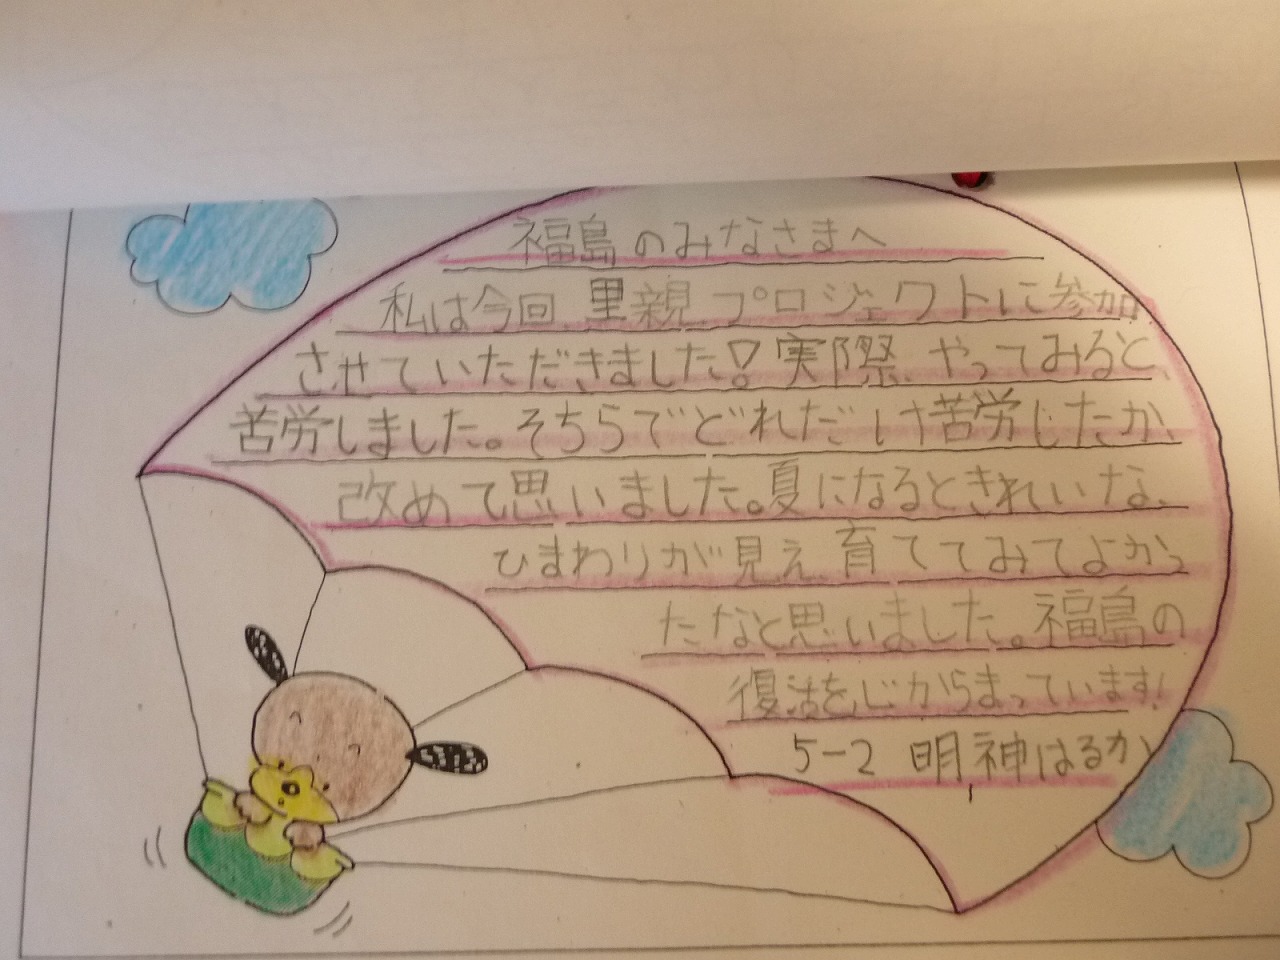 福島のみなさまへ
私は今回里親プロジェクトに参加
させていただきました！実際やってみると、
苦労しました。そちらでどれだけ苦労したか、
改めて思いました。夏になるときれいな
ひまわりが見え育ててみてよかっ
たなと思いました。福島の
復活を、心からまっています！
5-2 明神はるか